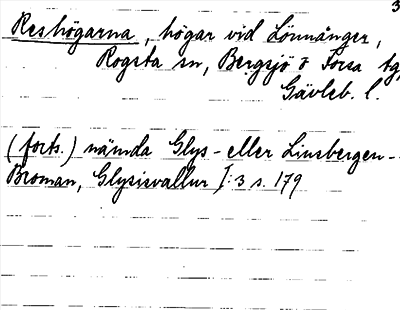 3
Reshögarna, högar vid Lönnånger,
Rogsta sn, Bergsjö o Forsa tg,
Gävleb. l.
(forts.) nämda Glys- eller Linsbergen -
Broman, Glysisvallur I:3 s. 179